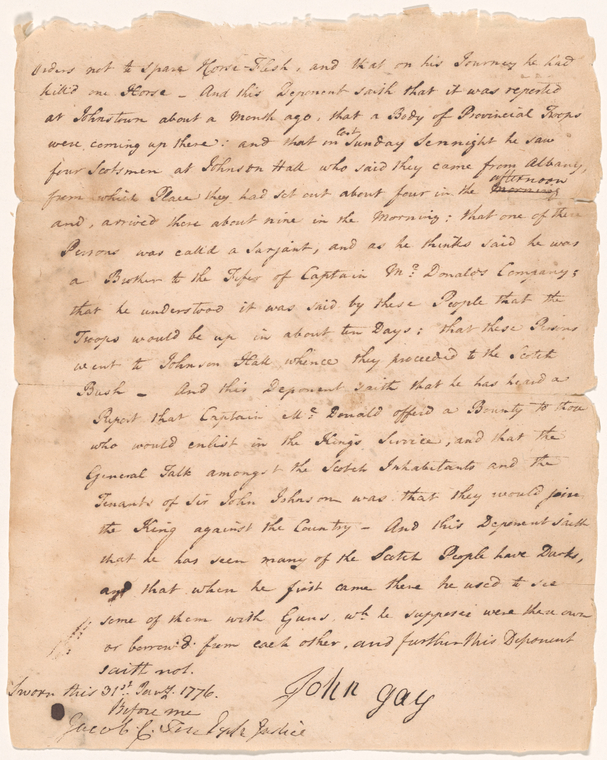 Orders not to spare Horse-Flesh, and that on his Journey he had
kill'd one Horse - And this Deponent saith that it was reported
at Johnstown about a Month ago, that a Body of Provincial Troops
were coming up there: and that on last Sunday Sennight he saw
four Scotsmen at Johnson Hall who said they came from Albany,
from which Place they had set out about four in the Morning afternoon
and, arrived there about nine in the Morning: that one of these
Persons was call'd a Surjant, and as he thinks said he was
a Brother to the Fifer of Captain Mc. Donald's Company;
that he understood it was said by these People that the
Troops would be up in about ten Days; that these Persons
went to Johnson Hall whence they proceeded to the Scotch
Bush - And this Deponent saith that he has heard a
Report that Captain Mc. Donald offer'd a Bounty to those
who would enlist in the King's Service, and that the
General Talk amongst the Scotch Inhabitants and the
Tenants of Sir John Johnson was that they would join
the King against the Country - And this Deponent saith
that he has seen many of the Scotch People have Durks,
and that when he first came there he used to see
some of them with Guns wh. he supposes were their own
or borrow'd from each other, and further this Deponent
saith not.
Sworn this 31st. Jany. 1776.
John Gay
Before me
Jacob C. Ten Eyck Justice